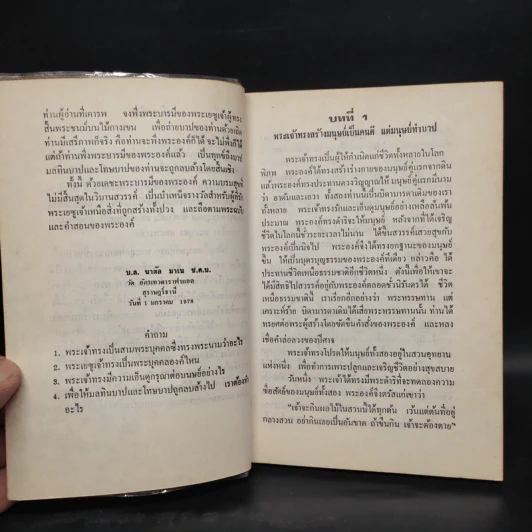 ท่านผู้อ่านที่เคารพ จงพึ่งพระบารมีของพระเยซูเจ้าผู้ทรง
สิ้นพระชนม์บนไม้กางเขน เพื่อถ่ายบาปของท่านด้วยเถิด
ท่านมีเสรีภาพก็จริง คือท่านจะพึ่งพระองค์ก็ได้ จะไม่พึ่งก็ได้
แต่ถ้าท่านพึ่งพระบารมีของพระองค์แล้ว เป็นทุกข์ถึงบาป
มลทินบาปและโทษบาปของท่านจะถูกลบล้างโดยสิ้นเชิง
ทั้งนี้ ด้วยเดชะพระบารมีของพระองค์ ความบรมสุขที่
ไม่มีสิ้นสุดในวิมานสวรรค์ เป็นบำเหน็จรางวัลสำหรับผู้ที่รัก
พระเยซูเจ้าเหนือสิ่งที่ถูกสร้างทั้งปวง และถือตามพระฉบับ
และคำสอนของพระองค์
บ.ล. มาเน ซ.ค.บ.
วัด อัครเทวดาราฟาแอล
สุราษฎร์ธานี
วันที่ 1 มกราคม 1978
คำถาม
1. พระเจ้าทรงเป็นสามพระบุคคลซึ่งทรงพระนามว่าอะไร
2. พระเยซูเจ้าทรงเป็นพระบุคคลองค์ไหน
3. พระเจ้าทรงมีความเอ็นดูกรุณาต่อมนุษย์อย่างไร
4. เพื่อให้มลทินบาปและโทษบาปถูกลบล้างไป เราต้องทำ
อะไร
บทที่ 1
พระเจ้าทรงสร้างมนุษย์เป็นคนดี แต่มนุษย์ทำบาป
พระเจ้าเป็นผู้ให้กำเนิดแก่ชีวิตทั้งหลายในโลก
พิภพ พระองค์ได้ทรงสร้างร่างกายของมนุษย์คู่แรกจากดิน
แล้วพระองค์ทรงประทานดวงวิญญาณให้ มนุษย์คู่แรกมีนาม
ว่า อาดัมและเอวา ทั้งสองท่านนี้เป็นบิดามารดาเดิมของเรา
ทั้งหลาย พระเจ้าทรงรักและเอ็นดูมนุษย์อย่างเหลือล้นพ้น
ประมาณ พระองค์ทรงดำริจะให้มนุษย์ หลังจากที่ได้เจริญ
ชีวิตในโลกนี้ชั่วระยะเวลาไม่นาน ได้ขึ้นสวรรค์เสวยสุขกับ
พระองค์เป็นนิจไป พระองค์จึงได้ทรงยกฐานะของมนุษย์
ขึ้น ให้เป็นบุตรบุญธรรมของพระองค์ทีเดียว กล่าวคือ ได้
ประทานชีวิตเหนือธรรมชาติอีกชีวิตหนึ่ง ดังนี้เพื่อให้เขาจะ
ได้มีสิทธิไปสวรรค์อยู่กับพระองค์ตลอดชั่วนิรันดรได้ ชีวิต
เหนือธรรมชาตินี้ เราเรียกอีกอย่างว่า พระหรรษทาน แต่
เคราะห์ร้าย บิดามารดาเดิมได้เสียพระหรรษทานนั้น ท่านได้
ทรยศต่อพระผู้สร้างโดยขัดขืนคำสั่งของพระองค์ และหลง
เชื่อคำล่อลวงของปีศาจ
พระเจ้าทรงโปรดให้มนุษย์ทั้งสองอยู่ในสวนอุทยาน
แห่งหนึ่ง เพื่อทำการเพาะปลูกและเจริญชีวิตอย่างสุขสบาย
วันหนึ่ง พระเจ้าได้ทรงมีพระดำริที่จะทดลองความ
ซื่อสัตย์ของมนุษย์ทั้งสอง พระองค์จึงตรัสแก่เขาว่า
“เจ้าจะกินผลไม้ในสวนนี้ได้ทุกต้น เว้นแต่ต้นที่อยู่
กลางสวน อย่ากินเลยเป็นอันขาด ถ้าขืนกิน เจ้าจะต้องตาย”